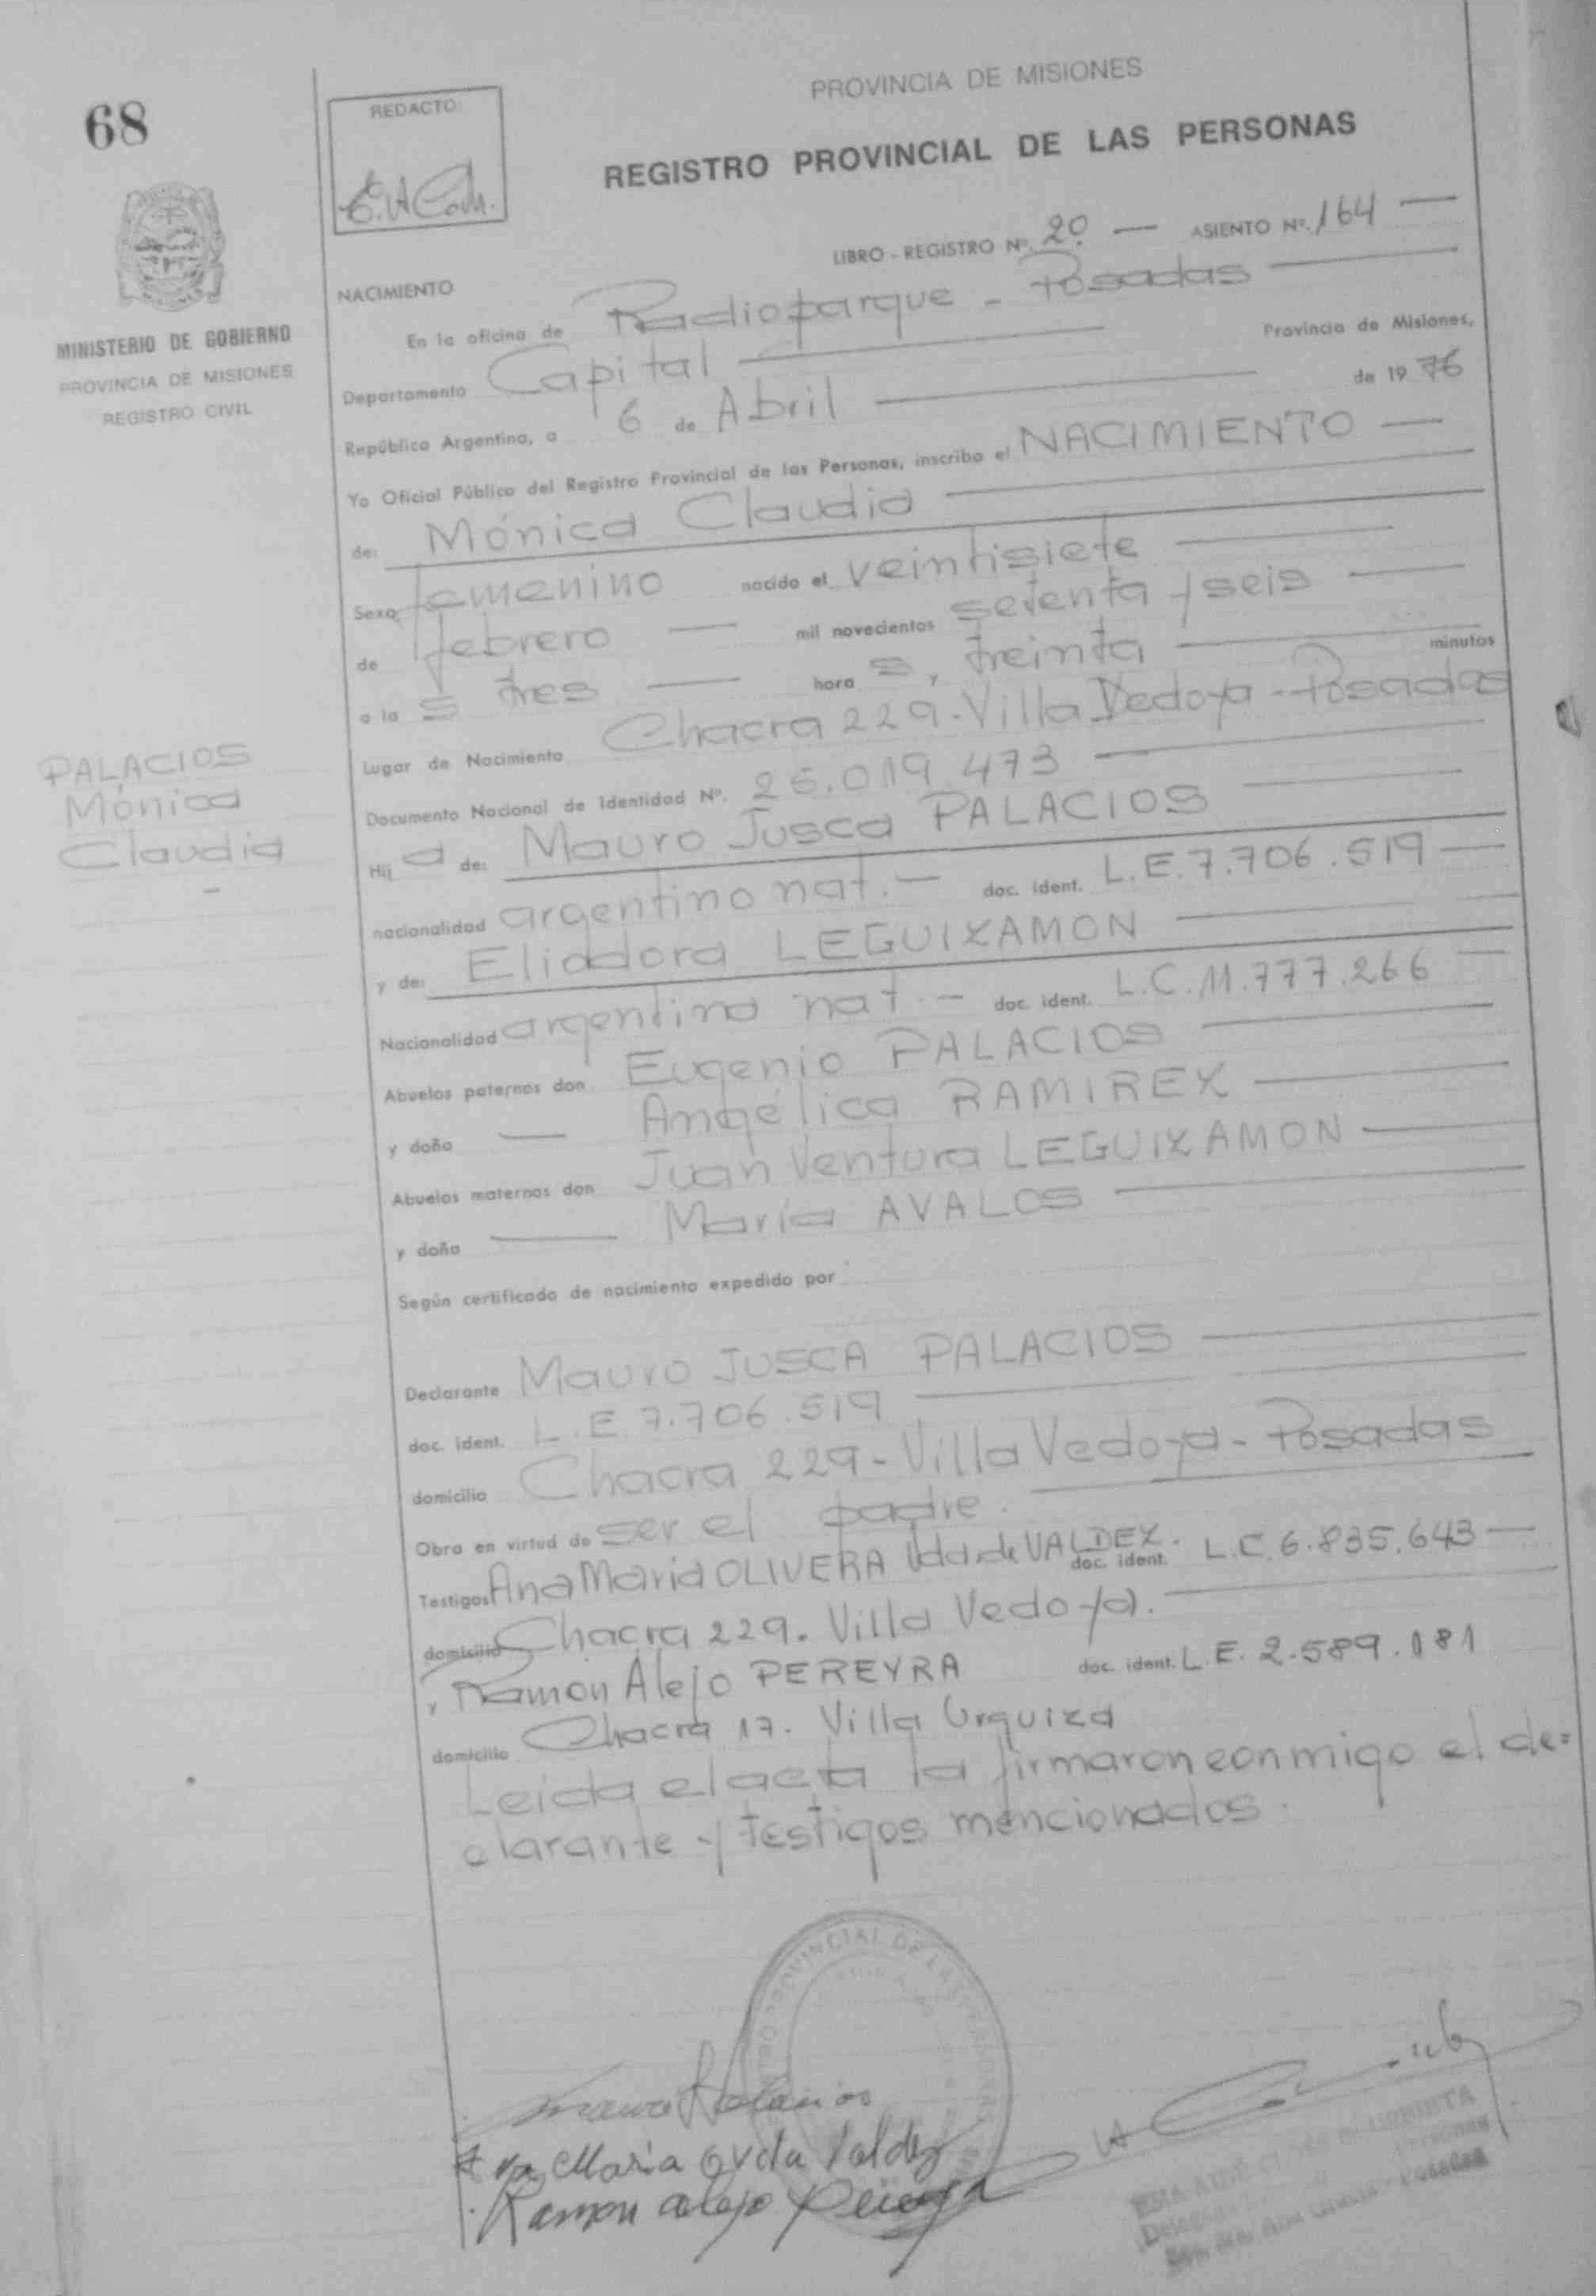 68
REDACTO
PROVINCIA DE MISIONES
REGISTRO PROVINCIAL DE LAS PERSONAS
LIBRO - REGISTRO Nº. 20. — ASIENTO Nº. 164 —
MINISTERIO DE GOBIERNO
PROVINCIA DE MISIONES
REGISTRO CIVIL
NACIMIENTO
En la oficina de Radioparque - Posadas
Departamento Capital Provincia de Misiones,
República Argentina, a 6 de Abril de 1976
Yo Oficial Público del Registro Provincial de las Personas, inscribo el NACIMIENTO —
de: Mónica Claudia
Sexo femenino nacido el veintisiete
de febrero — mil novecientos setenta y seis —
a la s tres — hora s, y treinta — minutos
Lugar de Nacimiento Chacra 229 - Villa Vedoya - Posadas
Documento Nacional de Identidad Nº. 25.019.473 —
PALACIOS
Mónica
Claudia
-
Hij a de: Mauro Jusca PALACIOS
nacionalidad argentino nat. — doc. ident. L.E. 7.706.519 —
y de: Eliodora LEGUIZAMON
Nacionalidad argentina nat. — doc. ident. L.C. 11.777.266 —
Abuelos paternos don Eugenio PALACIOS
y doña — Angélica RAMIREZ
Abuelos maternos don Juan Ventura LEGUIZAMON
y doña — María AVALOS
Según certificado de nacimiento expedido por
Declarante Mauro JUSCA PALACIOS
doc. ident. L.E. 7.706.519
domicilio Chacra 229 - Villa Vedoya - Posadas
Obra en virtud de ser el padre.
Testigos Ana María OLIVERA Vda. de VALDEZ. doc. ident. L.C. 6.835.643 —
domicilio Chacra 229. Villa Vedoya).
y Ramón Alejo PEREYRA doc. ident. L.E. 2.589.181
domicilio Chacra 17. Villa Urquiza
Leida el acta la firmaron conmigo el de=
clarante y testigos mencionados.
PROVINCIAL DE LAS PERSONAS
Mauro Palacios
Ana Maria Ovda Valdez
Ramon alejo Pereyra
Posadas